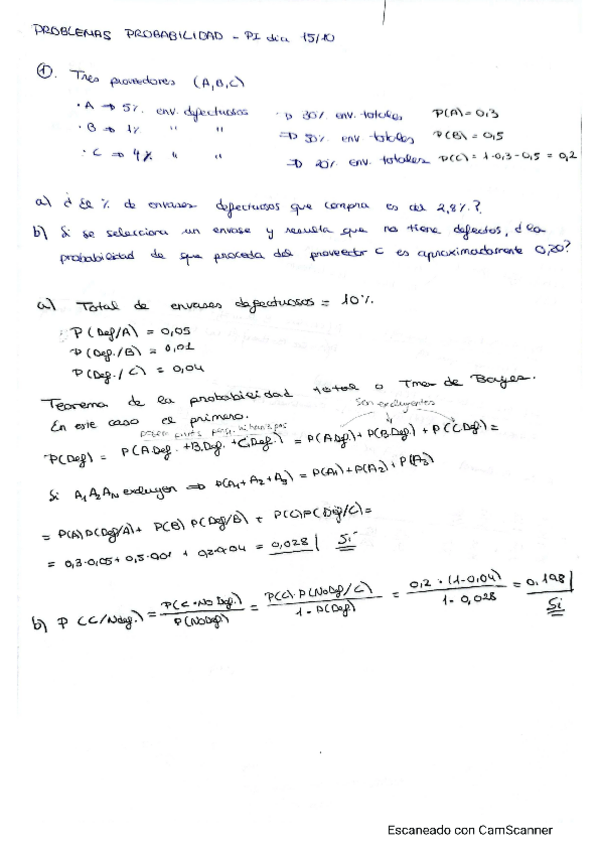 PROBLEMAS PROBABILIDAD - PI día 15/10
①. Tres proveedores (A,B,C)
· A ⇒ 5% env. defectuosos ⇒ 30% env. totales P(A) = 0,3
· B ⇒ 1% " " ⇒ 50% env totales P(B) = 0,5
· C ⇒ 4% " " ⇒ 20% env. totales P(C) = 1-0,3-0,5 = 0,2
a) ¿ El % de envases defectuosos que compra es del 2,8%.?
b) Si se selecciona un envase y resulta que no tiene defectos, ¿la
probabilidad de que proceda del proveedor C es aproximadamente 0,20?
a) Total de envases defectuosos = 10%.
P(Def/A) = 0,05
P(Def./B) = 0,01
P(Def./C) = 0,04
Teorema de la probabilidad total o Tma de Bayes.
En este caso el primero.
son excluyentes
P(Def) = P(A.Def. + B.Def. + C.Def.) = P(A.Def.) + P(B.Def.) + P(C.Def.) =
Si A₁ A₂ Aₙ excluyen ⇒ P(A₁ + A₂ + A₃) = P(A₁) + P(A₂) + P(A₃)
= P(A) P(Def/A) + P(B) P(Def/B) + P(C) P(Def/C) =
= 0,3·0,05 + 0,5·0,01 + 0,2·0,04 = 0,028 Sí
b) P (C/Nodef.) = P(C·No Def.) / P(NoDef) = P(C)·P(NoDef/C) / 1-P(Def) = 0,2·(1-0,04) / 1-0,028 = 0,198 Si
Escaneado con CamScanner